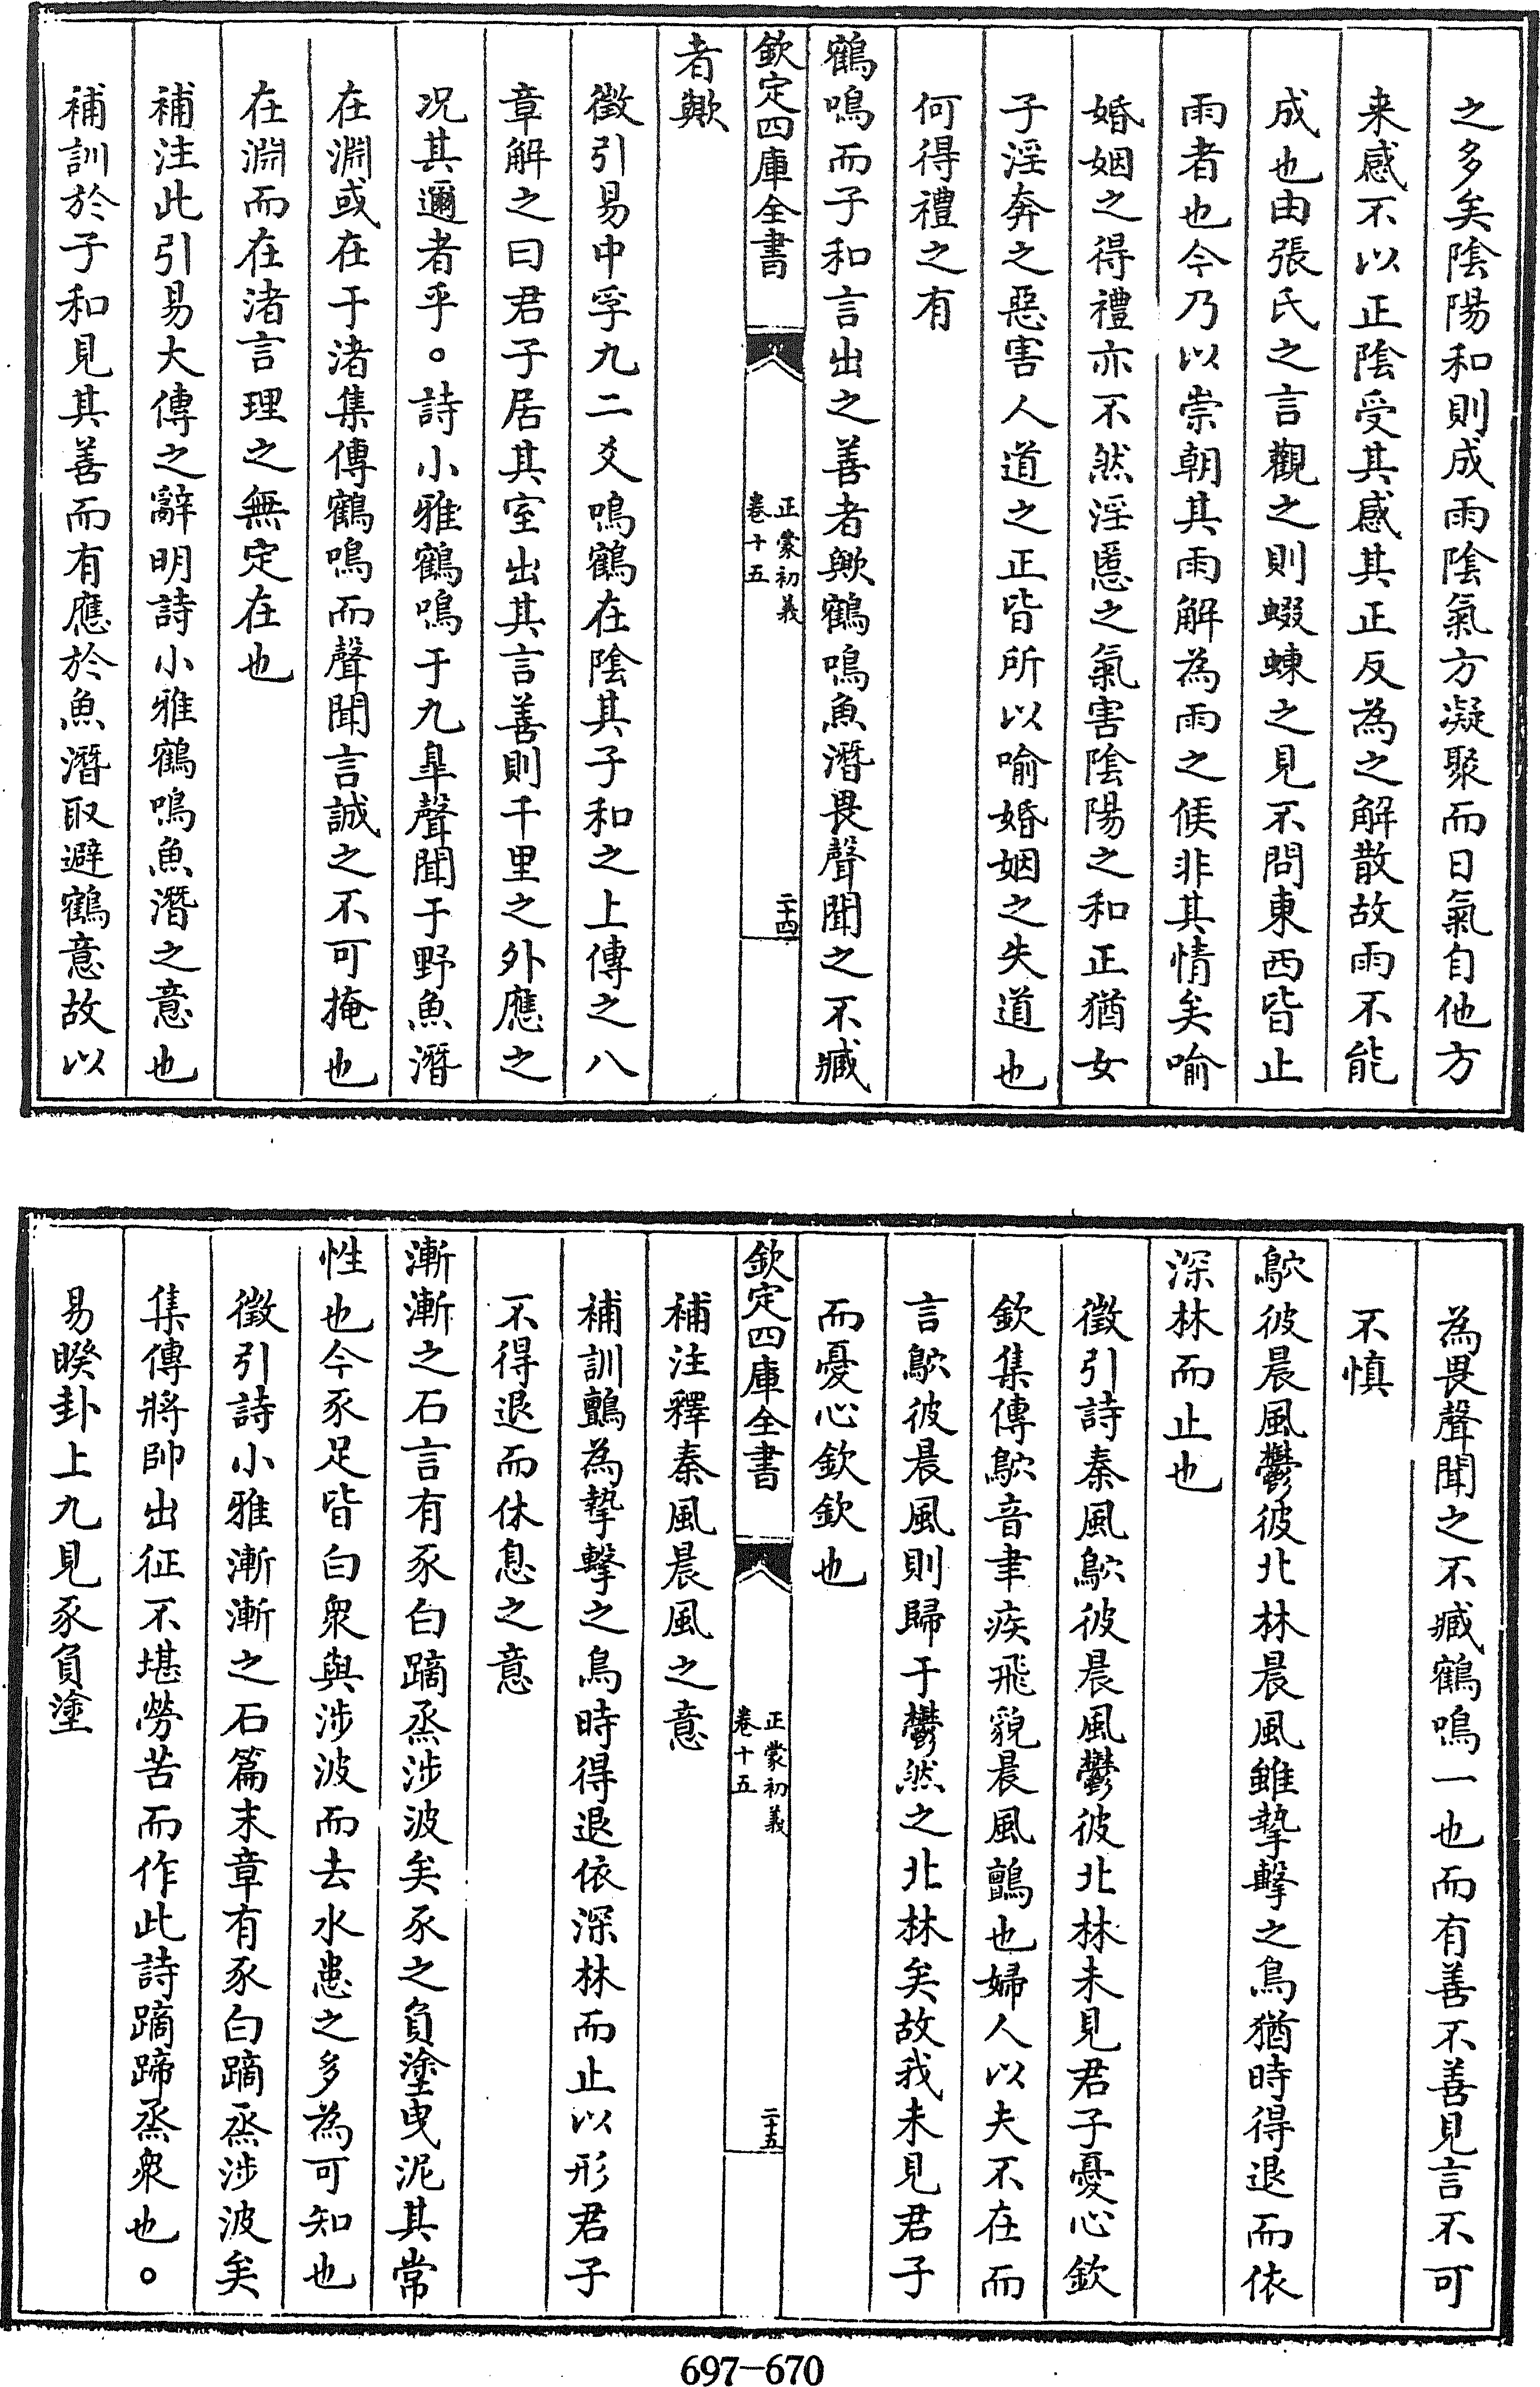 之多矣陰陽和則成雨陰氣方凝聚而日氣自他方
来感不以正陰受其感其正反為之解散故雨不能
成也由張氏之言觀之則蝃蝀之見不問東西皆止
雨者也今乃以崇朝其雨解為雨之候非其情矣喻
婚姻之得禮亦不然淫慝之氣害陰陽之和正猶女
子淫奔之惡害人道之正皆所以喻婚姻之失道也
何得禮之有
鶴鳴而子和言出之善者歟鶴鳴魚潛畏聲聞之不臧
欽定四庫全書
正蒙初義
卷十五
二十四
者歟
徵引易中孚九二爻鳴鶴在陰其子和之上傳之八
章解之曰君子居其室出其言善則千里之外應之
况其邇者乎。詩小雅鶴鳴于九臯聲聞于野魚潛
在淵或在于渚集傳鶴鳴而聲聞言誠之不可掩也
在淵而在渚言理之無定在也
補注此引易大傳之辭明詩小雅鶴鳴魚潛之意也
補訓於子和見其善而有應於魚潛取避鶴意故以
為畏聲聞之不臧鶴鳴一也而有善不善見言不可
不慎
鴥彼晨風鬱彼北林晨風雖摯擊之鳥猶時得退而依
深林而止也
徵引詩秦風鴥彼晨風鬱彼北林未見君子憂心欽
欽集傳鴥音聿疾飛貌晨風鸇也婦人以夫不在而
言鴥彼晨風則歸于鬱然之北林矣故我未見君子
而憂心欽欽也
欽定四庫全書
正蒙初義
卷十五
二十五
補注釋秦風晨風之意
補訓鸇為摯擊之鳥時得退依深林而止以形君子
不得退而休息之意
漸漸之石言有豕白蹢烝涉波矣豕之負塗曳泥其常
性也今豕足皆白衆與涉波而去水患之多為可知也
徵引詩小雅漸漸之石篇末章有豕白蹢烝涉波矣
集傳將帥出征不堪勞苦而作此詩蹢蹄烝衆也。
易睽卦上九見豕負塗
697-670